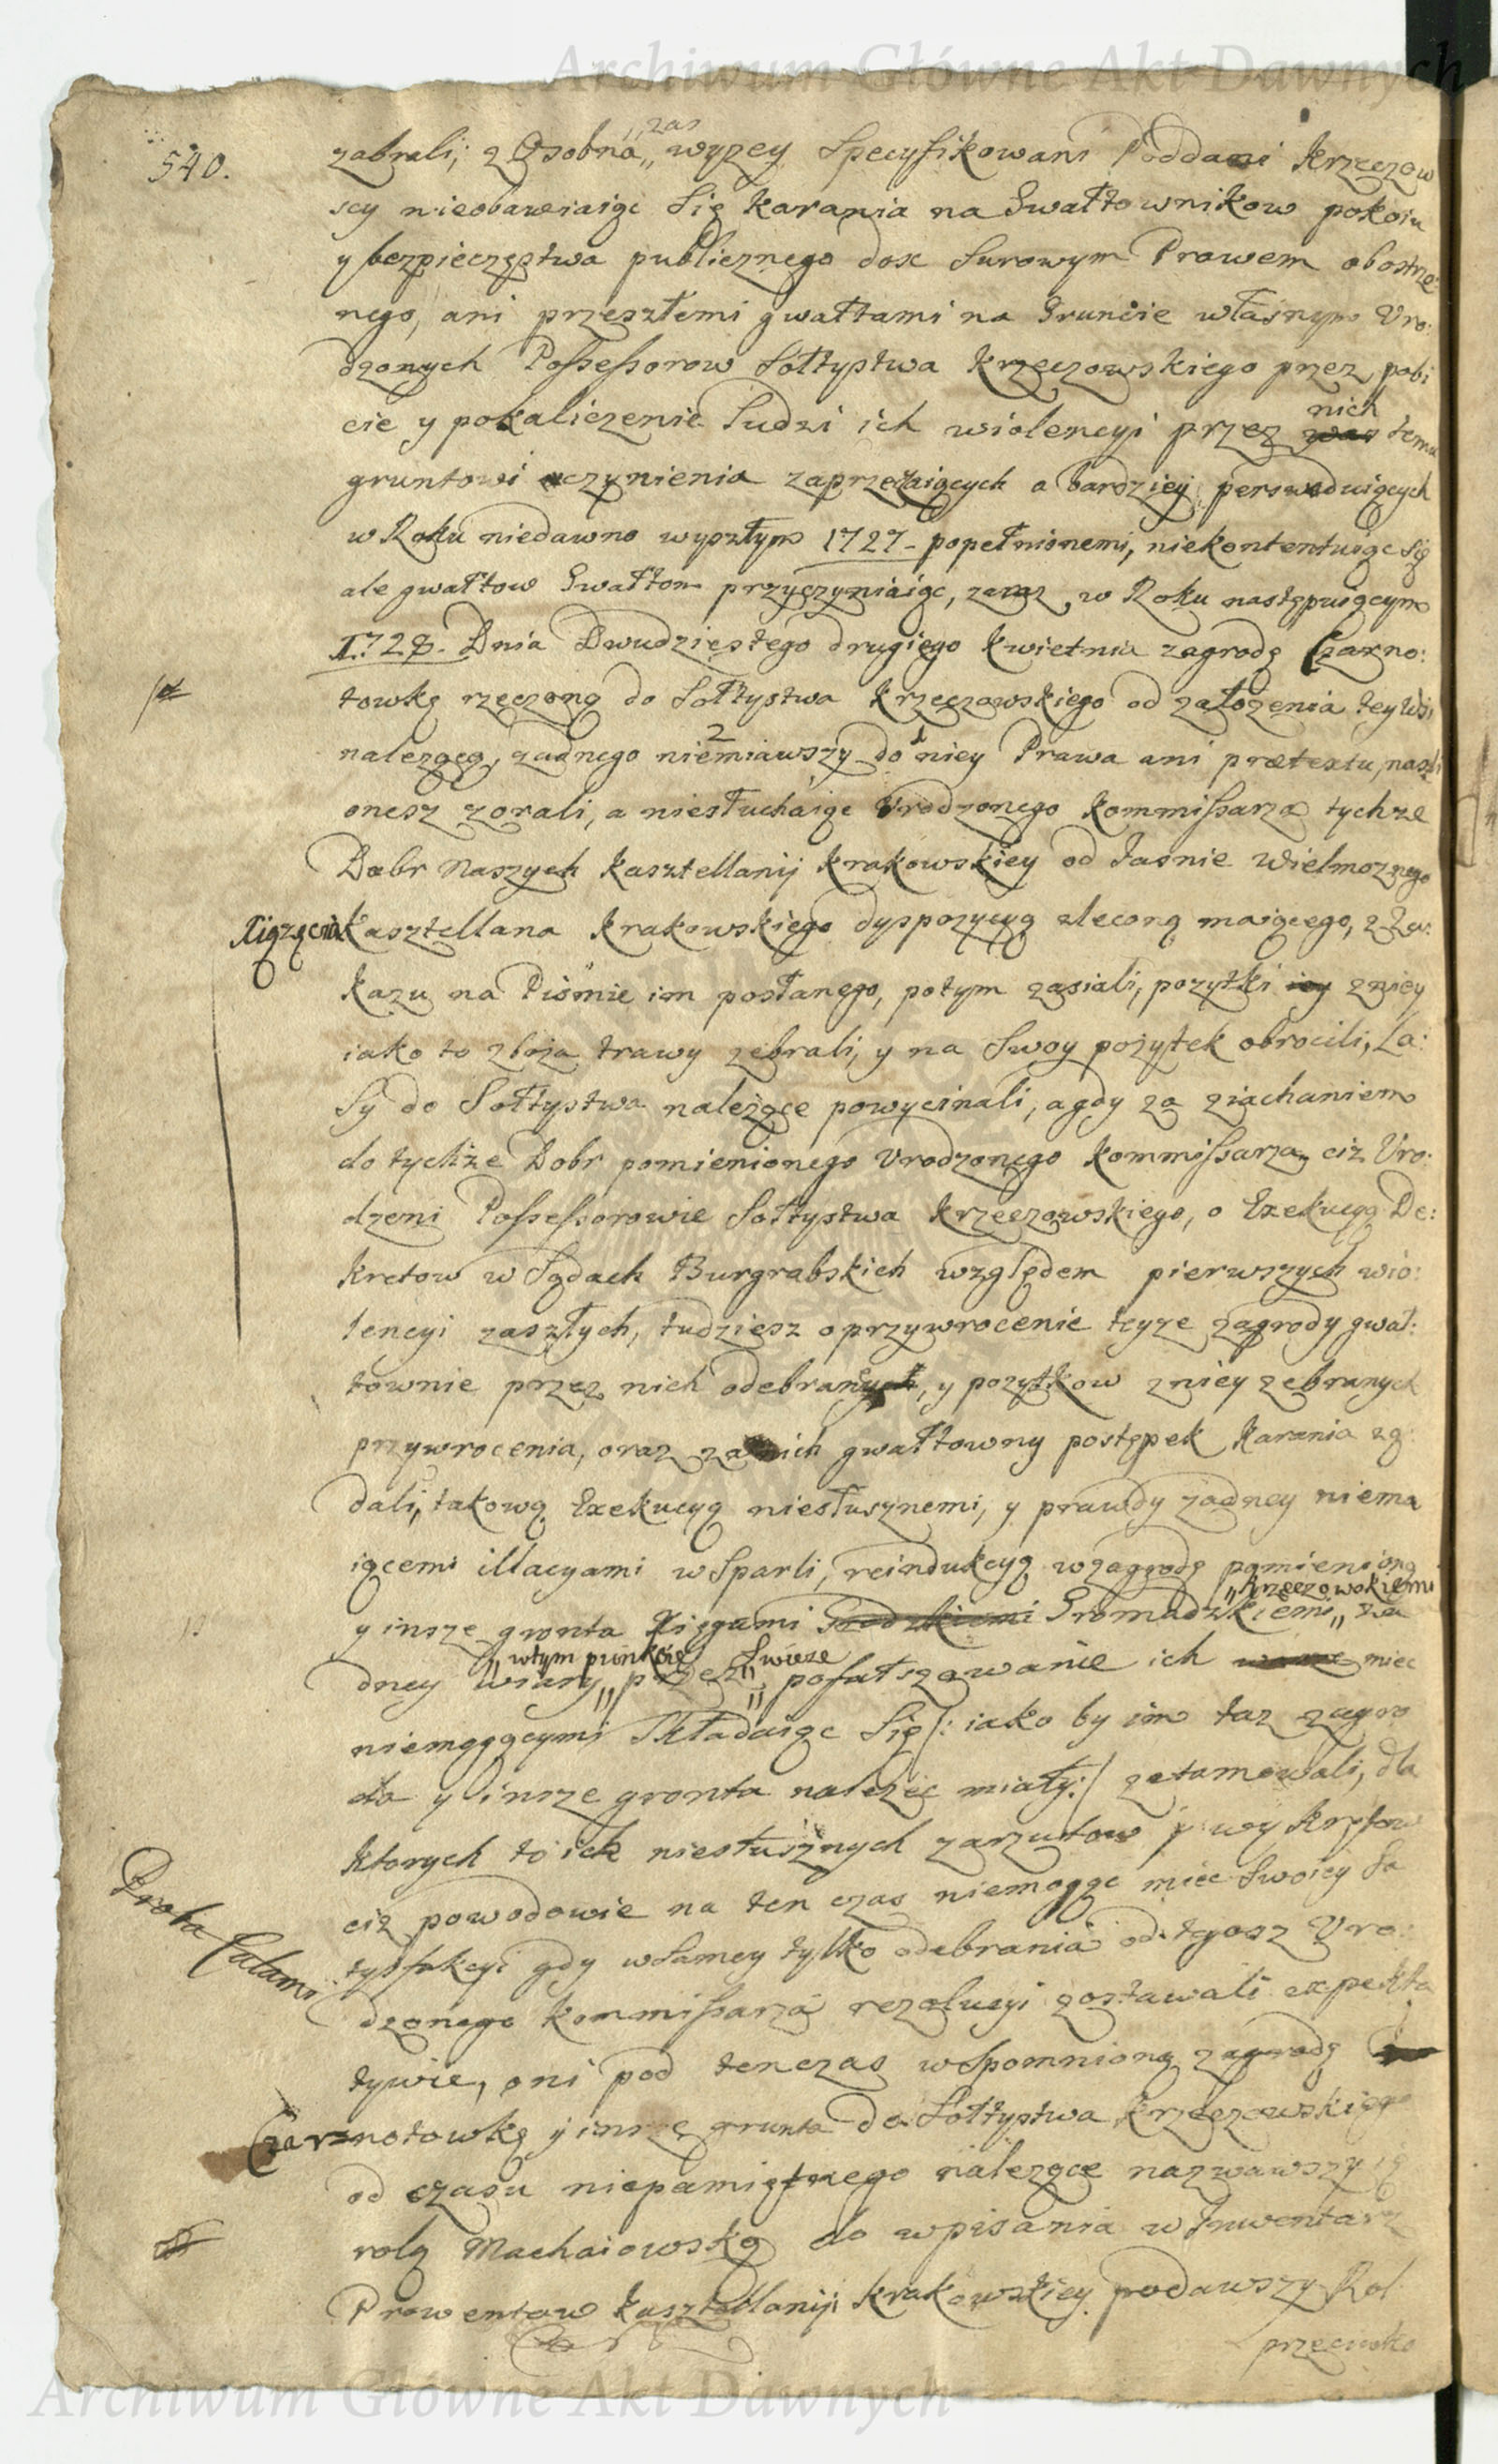 Archiwum Główne Akt Dawnych
540.
zas
zabrali, z Osobna,, wyzey Specyfikowani Poddani Krzeczow
scy nieobawiaiąc Się karania na Gwałtownikow pokoiu
y bezpieczęstwa publicznego dosc Surowym Prawem obostrzo:
nego, ani przeszłemi gwałtami na Gruncie własnym Vro:
dzonych Possessorow Sołtystwa Krzeczowskiego przez pobi
cie y pokaliczenie Ludzi ich wiolencyi przez nich temu
gruntowi uczynienia zaprzeraiących a bardziey perswaduiących
w Roku niedawno wyszłym 1727 - popełnionemi, niekontentuiąc Się
ale gwałtow Gwałtom przyczyniaiąc, zaraz w Roku następuiącym
1728. Dnia Dwudziestego drugiego Kwietnia zagrodę Czarno:
towkę rzeczoną do Sołtystwa Krzeczowskiego od załozenia tey Wsi
nalezącą, zadnego niemiawszy do niey Prawa ani prætextu, naszli
onesz zorali, a niesłuchaiąc Vrodzonego Kommissarza tychze
Dobr Naszych Kasztellanij Krakowskiey od Jasnie Wielmoznego
Xiązęcia Kasztellana Krakowskiego dyspozycyą zleconą maiącego, z Za:
kazu na Pismie im posłanego, potym zasiali, pozytki iey zniey
iako to zboza trawy zebrali, y na Swoy pozytek obrocili, La:
Sy do Sołtystwa nalezące powycinali, a gdy za ziachaniem
do tychze Dobr pomienionego Vrodzonego Kommissarza, ciz Vro:
dzeni Possessorowie Sołtystwa Krzeczowskiego, o Exekucyą De:
kretow w Sądach Burgrabskich względem pierwszych wio:
lencyi zaszłych, tudziesz o przywrocenie teyze zagrody gwał:
townie przez nich odebraney, y pozytkow zniey zebranych
przywrocenia, oraz za ich gwałtowny postępek karania ząˑ
dali, takową Exekucyą niesłusznemi, y prawdy zadney niema
iącemi illacyami wSparli, reindukcyą wzagrodę pomienioną
,,Krzeczowskiemi
y insze gronta Xięgami Grodzkiemi Gromadzkiemi,, za
,,wtym punkcie Swieze
dney wiary,, przez,, pofałszowanie ich miec
niemogącymi Składaiąc Się /: iako by im taz zagro
da y insze gronta nalezec miały :/ zatamowali, dla
ktorych to ich niesłusznych zarzutow y wykrętow
ciz powodowie na ten czas niemogąc miec Swoiey Sa
tysfakcyi gdy wSamey tylko odebrania od tegosz Vro:
dzonego Kommissarza rezolucyi zostawali expekta
Proba Calami
tywie, oni pod tenczas wSpomnioną zagrodę
Czarnotowkę y insze grunta do Sołtystwa Krzeczowskiego
od czasu niepamiętnego nalezące nazwawszy ią
rolą Machaiowską do wpisania w Inwentarz
Prowentow Kasztellanij Krakowskiey podawszy Rol
przeciwko
Archiwum Główne Akt Dawnych